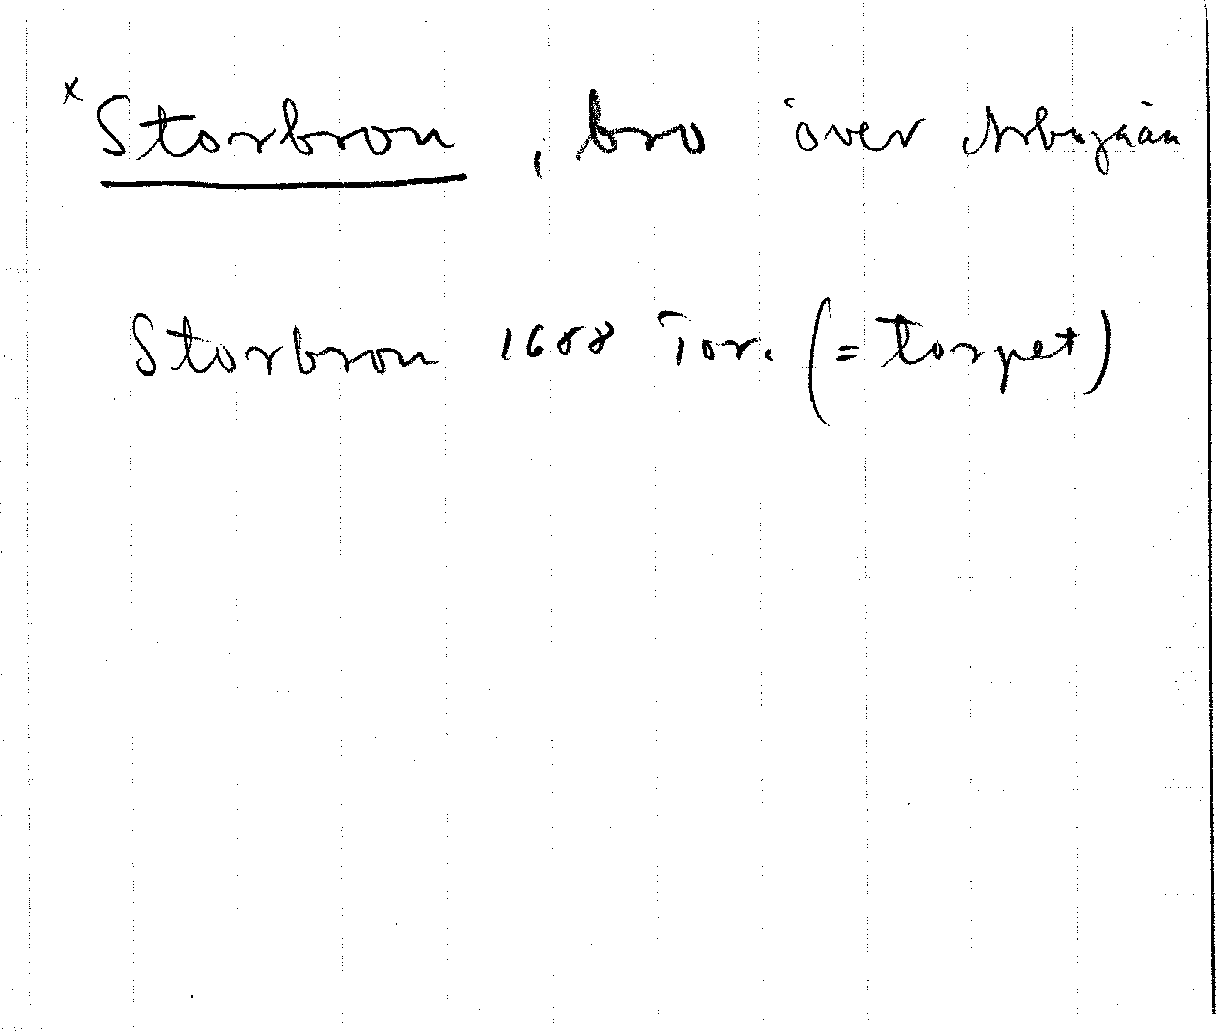 x Storbron, bro över Arbogaån
Storbron 1688 Tor. (= torpet)